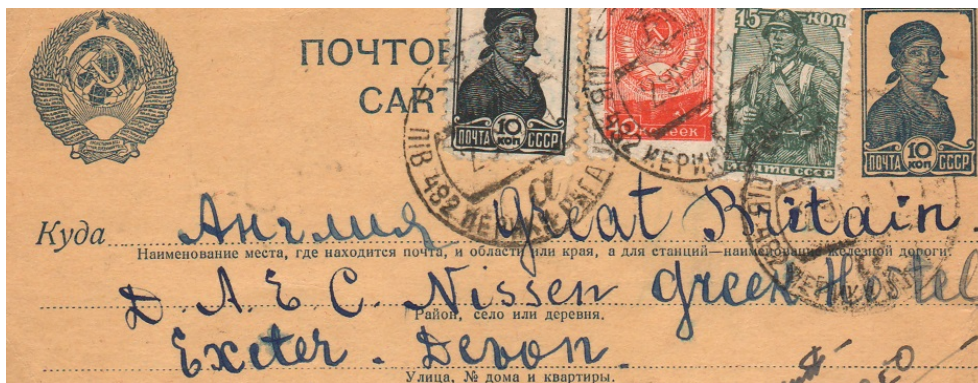 ПОЧТОВ
CART
ПОЧТА 10 КОП СССР
КОПЕЕК
15 КОП
ПОЧТА СССР
ПОЧТА 10 КОП СССР
ПВ 482
Куда Англия Great Britain
Наименование места, где находится почта, и области или края, а для станций—наименование железной дороги.
D. A. E. C. Nissen Green Hotel
Район, село или деревня.
Exeter. Devon.
Улица, № дома и квартиры.